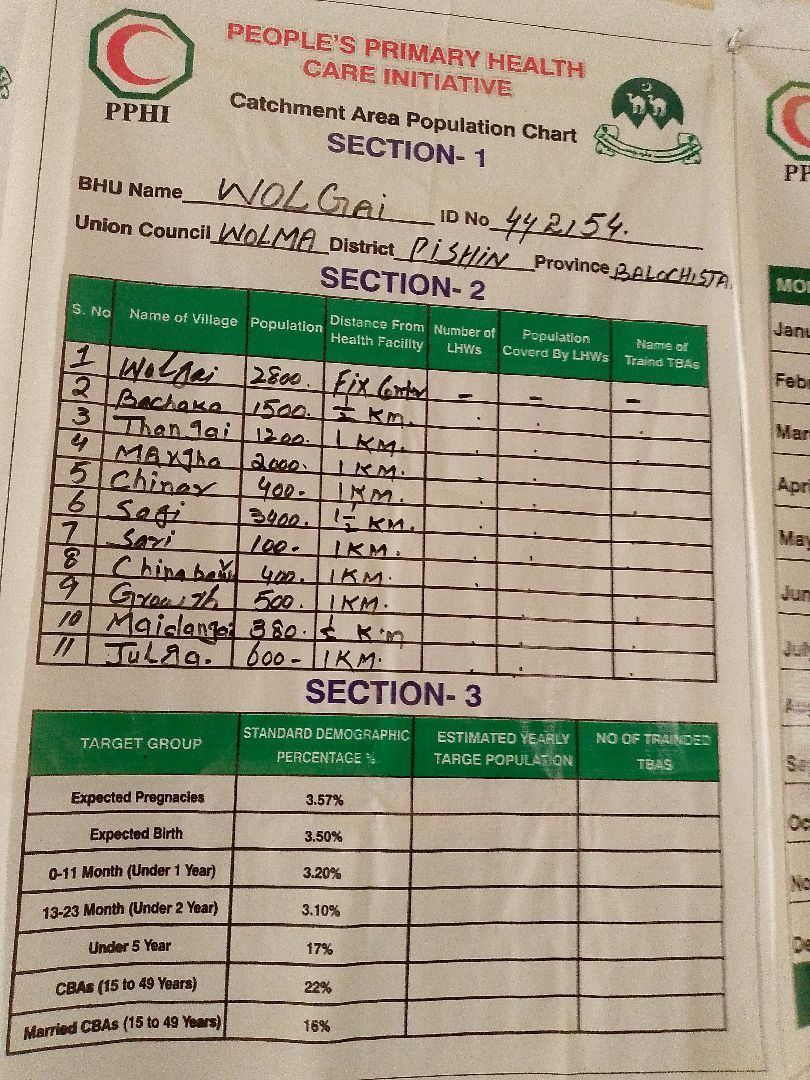 PPHI
PEOPLE'S PRIMARY HEALTH
CARE INITIATIVE
Catchment Area Population Chart
SECTION- 1
BHU Name WOLGAi ID No 442154.
Union Council WOLMA District PISHIN Province BALOCHISTA
SECTION- 2
S. No Name of Village Population Distance From Health Facility Number of LHWs Population Coverd By LHWs Name of Traind TBAs
1 Wolgai 2800. Fix Center - - -
2 Bachako 1500. 1/2 KM.
3 Thangai 1200. 1 KM.
4 MARgha 2000. 1 KM.
5 Chinar 400- 1 KM.
6 Sagi 3400. 1 1/2 KM.
7 Sari 100- 1 KM.
8 China 400. 1 KM.
9 500. 1 KM.
10 Maidangai 380. 1/2 K.m
11 JULGa. 600- 1 KM.
SECTION- 3
TARGET GROUP STANDARD DEMOGRAPHIC PERCENTAGE % ESTIMATED YEARLY TARGE POPULATION NO OF TRAINDED TBAS
Expected Pregnacies 3.57%
Expected Birth 3.50%
0-11 Month (Under 1 Year) 3.20%
13-23 Month (Under 2 Year) 3.10%
Under 5 Year 17%
CBAs (15 to 49 Years) 22%
Married CBAs (15 to 49 Years) 16%
PP
MO
Janu
Febr
Mar
Apri
May
Jun
Jul
Se
Oc
No
De